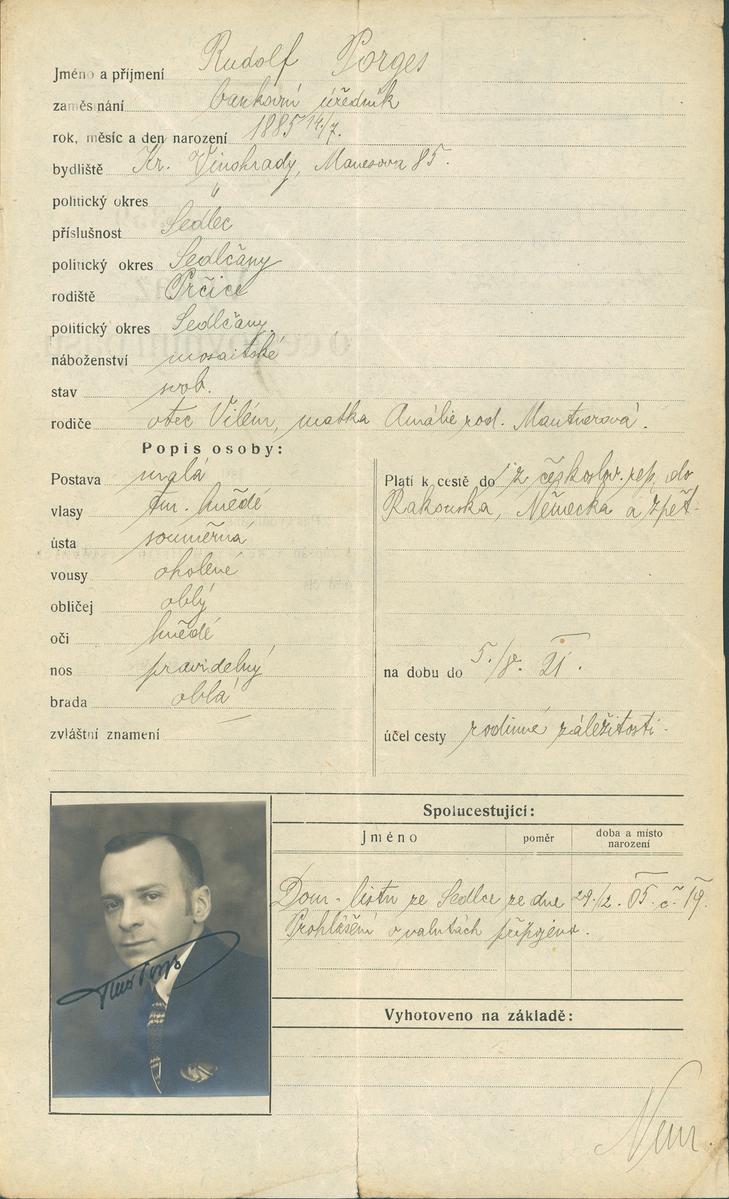 Jméno a příjmení Rudolf Porges
zaměstnání bankovní úředník
rok, měsíc a den narození 1885 14/7.
bydliště Kr. Vinohrady, Manesova 85.
politický okres "
příslušnost Sedlec
politický okres Sedlčany
rodiště Prčice
politický okres Sedlčany.
náboženství mosaitské
stav svob.
rodiče otec Vilém, matka Amálie rod. Mautnerová.
Popis osoby:
Postava malá
vlasy tm. hnědé
ústa souměrná
vousy oholené
obličej oblý
oči hnědé
nos pravidelný
brada oblá
zvláštní znamení —
Platí k cestě do z českoslov. rep. do
Rakouska, Německa a zpět.
na dobu do 5./V. 21.
účel cesty rodinné záležitosti.
Spolucestující:
Jméno poměr doba a místo narození
Dom. listu ze Sedlce ze dne 29./2. 05. č. 19.
Prohlášení o valutách připojeno.
Vyhotoveno na základě: